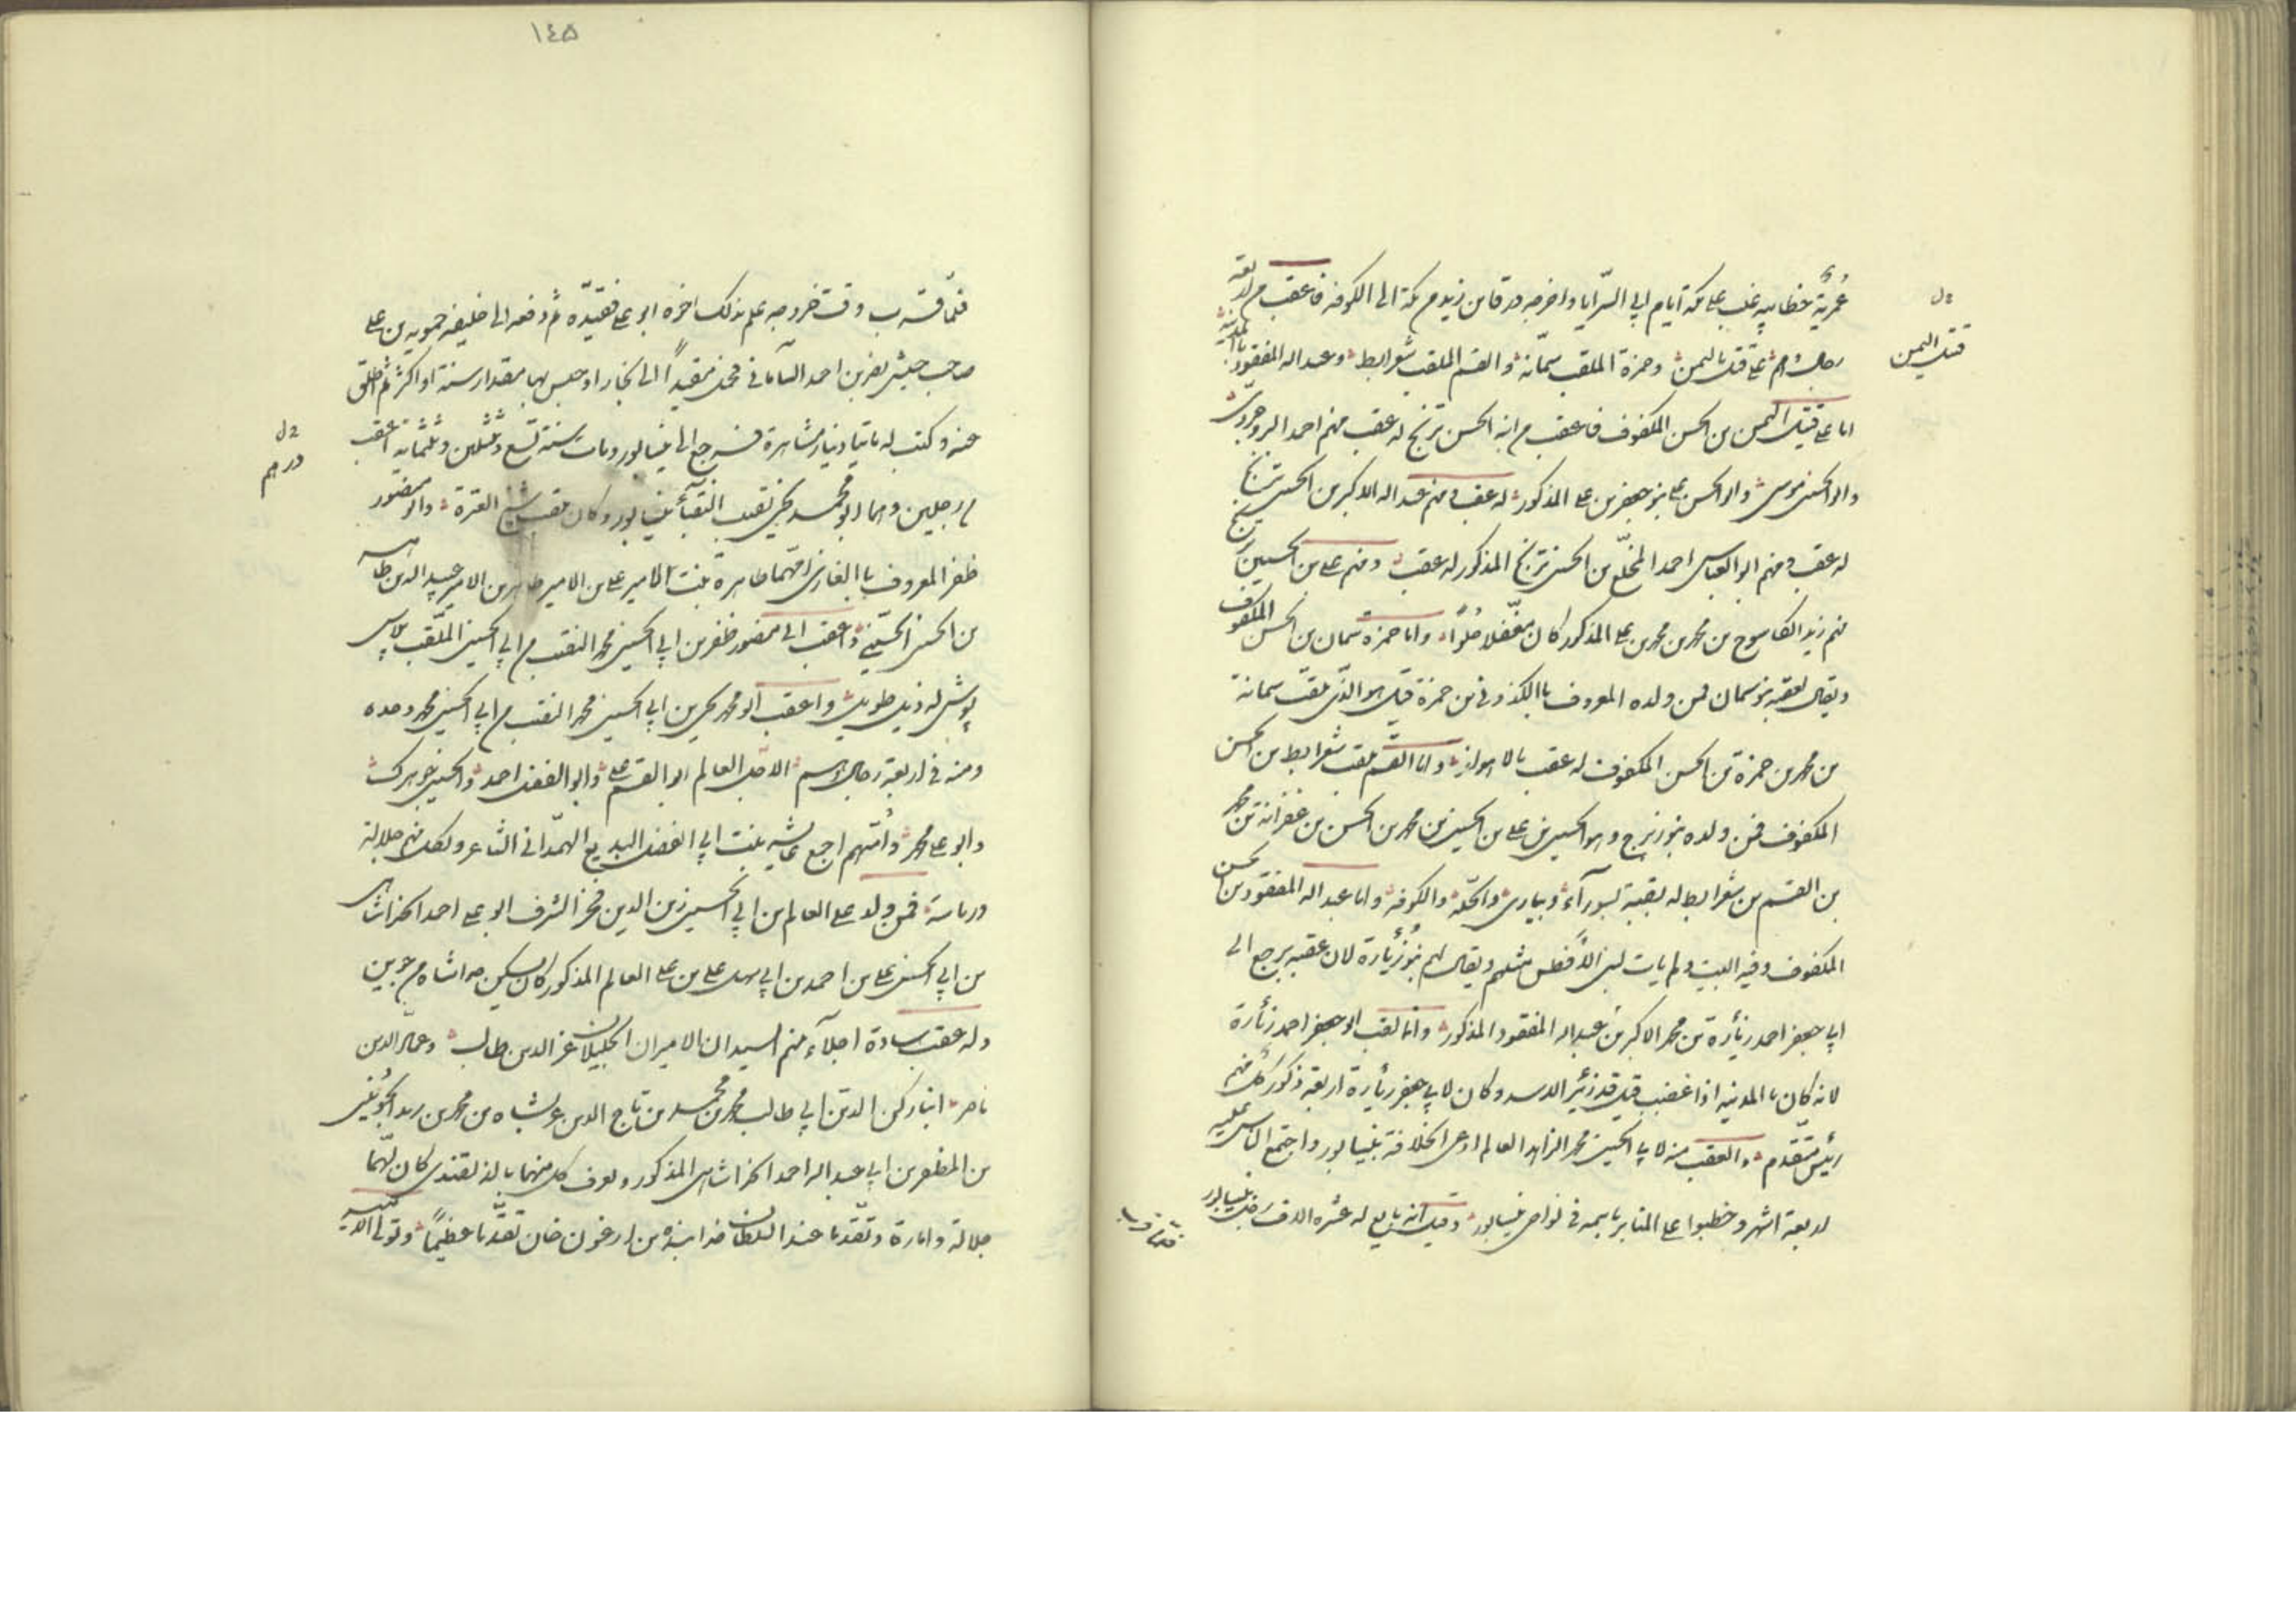 عُمَريّة خطابيه غلب على مكة ايام ابي السّرايا واخرجه ورقا بن زيد من مكة الى الكوفه فاعقب من اربعة
رجال وهم على قتيل باليمن وحمزة الملقب سمّانة والقسم الملقب شعرابط وعبد الله المفقود بالمدينة
اما على قتيل اليمن بن الحسن المكفوف فاعقب من ابنه الحسن ترنج له عقب منهم احمد البروجردى
وابو الحسن موسى وابو الحسن على بنو جعفر بن على المذكور له عقب ومنهم عبد الله الاكبر بن الحسن ترنج
له عقب ومنهم ابو العباس احمد المخلّع بن الحسن ترنج المذكور له عقب ومنهم على بن الحسين ترنج
منهم زيد بن محمد بن محمد بن على المذكور كان مغفّلا واما حمزه سمان بن الحسن المكفوف
ويقال لعقبه بنو سمان فمن ولده المعروف با بن حمزة قيل هو الذى يلقّب سمانة
بن محمد بن حمزة بن الحسن المكفوف له عقب بالاهواز واما القسم يلقب شعرابط بن الحسن
المكفوف فمن ولده بنو زبرج وهو الحسين بن على بن الحسين بن محمد بن الحسن بن بن محمد
بن القسم بن شعرابط له بقية بسورآء والحلّة والكوفة واما عبد الله المفقود بن الحسن
المكفوف وفيه البيت ولم يات لبنى الأفطس مثلهم ويقال لهم بنو زُبَارة لان عقبه يرجع الى
ابي جعفر احمد زبارة بن محمد الاكبر بن عبد الله المفقود المذكور وانما لقب ابو جعفر احمد زبارة
لانه كان بالمدينه اذا غضب قيل قد زبر الاسد وكان لابي جعفر زبارة اربعة ذكور كل منهم
رئيس متقدم والعقب منه لابي الحسين محمد الزاهد العالم ادعى الخلافة بنيسابور واجتمع الناس عليه
اربعة اشهر وخطبوا على المنابر باسمه فى نواحى نيسابور وقيل انه بايع له عشره الاف رجل بنيسابور
فلما قرب
قتيل اليمن
١٤٥
فلمّا قرب وقت خروجه علم بذلك اخوه ابو على فقيّده ثم دفعه الى خليفه حمويه بن على
صاحب جيش نصر بن احمد السّامانى فحمل مقيّداً الى بخارا وحبس بها مقدار سنة او اكثر ثم اطلق
عنه وكتب له دينار مشاهرة فرجع الى نيسابور ومات سنة تسع وثلثين وثلثمائة اعقب
من رجلين وهما ابو محمد يحيى نقيب النقبآء بنيسابور وكان يلقب شيخ العترة وابو منصور
ظفر المعروف با الغازى امهما طاهرة بنت الامير على بن الامير طاهر بن الامير عبد الله بن طاهر
بن الحسين فاعقب ابى منصور ظفر بن ابي الحسين محمد النقيب من ابي الحسين الملقب پلاس
پوش له ذيل طويل واعقب ابو محمد يحيى بن ابي الحسين محمد النقيب من ابي الحسين محمد وحده
ومنه فى اربعة رجال وهم الاجل العالم ابو القسم على وابو الفضل احمد والحسين جوهرك
وابو على محمد وامهم اجمع عايشه بنت ابي الفضل البديع الهمدانى الشاعر ولكل منهم جلالة
ورياسة فمن ولد على العالم بن ابي الحسين زين الدين فخر الشرف ابو على احمد الخداشاهى
بن ابي الحسن على بن احمد بن ابي سهل على بن على العالم المذكور كان يسكن خداشاه من جوين
وله عقب سادة اجلآء منهم السيدان الاميران الجليلان عز الدين طالب وعماد الدين
ناصر ابنا ركن الدين ابي طالب محمد بن محمد بن تاج الدين عربشاه بن محمد بن زيد الجوينى
بن المظفر بن ابي عبد الله احمد الخداشاهى المذكور ويعرف كل منهما بالدلقندى كان لهما
جلالة وامارة وتقدّما عند السلطان خدابنده بن ارغون خان تقدّما عظيماً وتولى
درهم